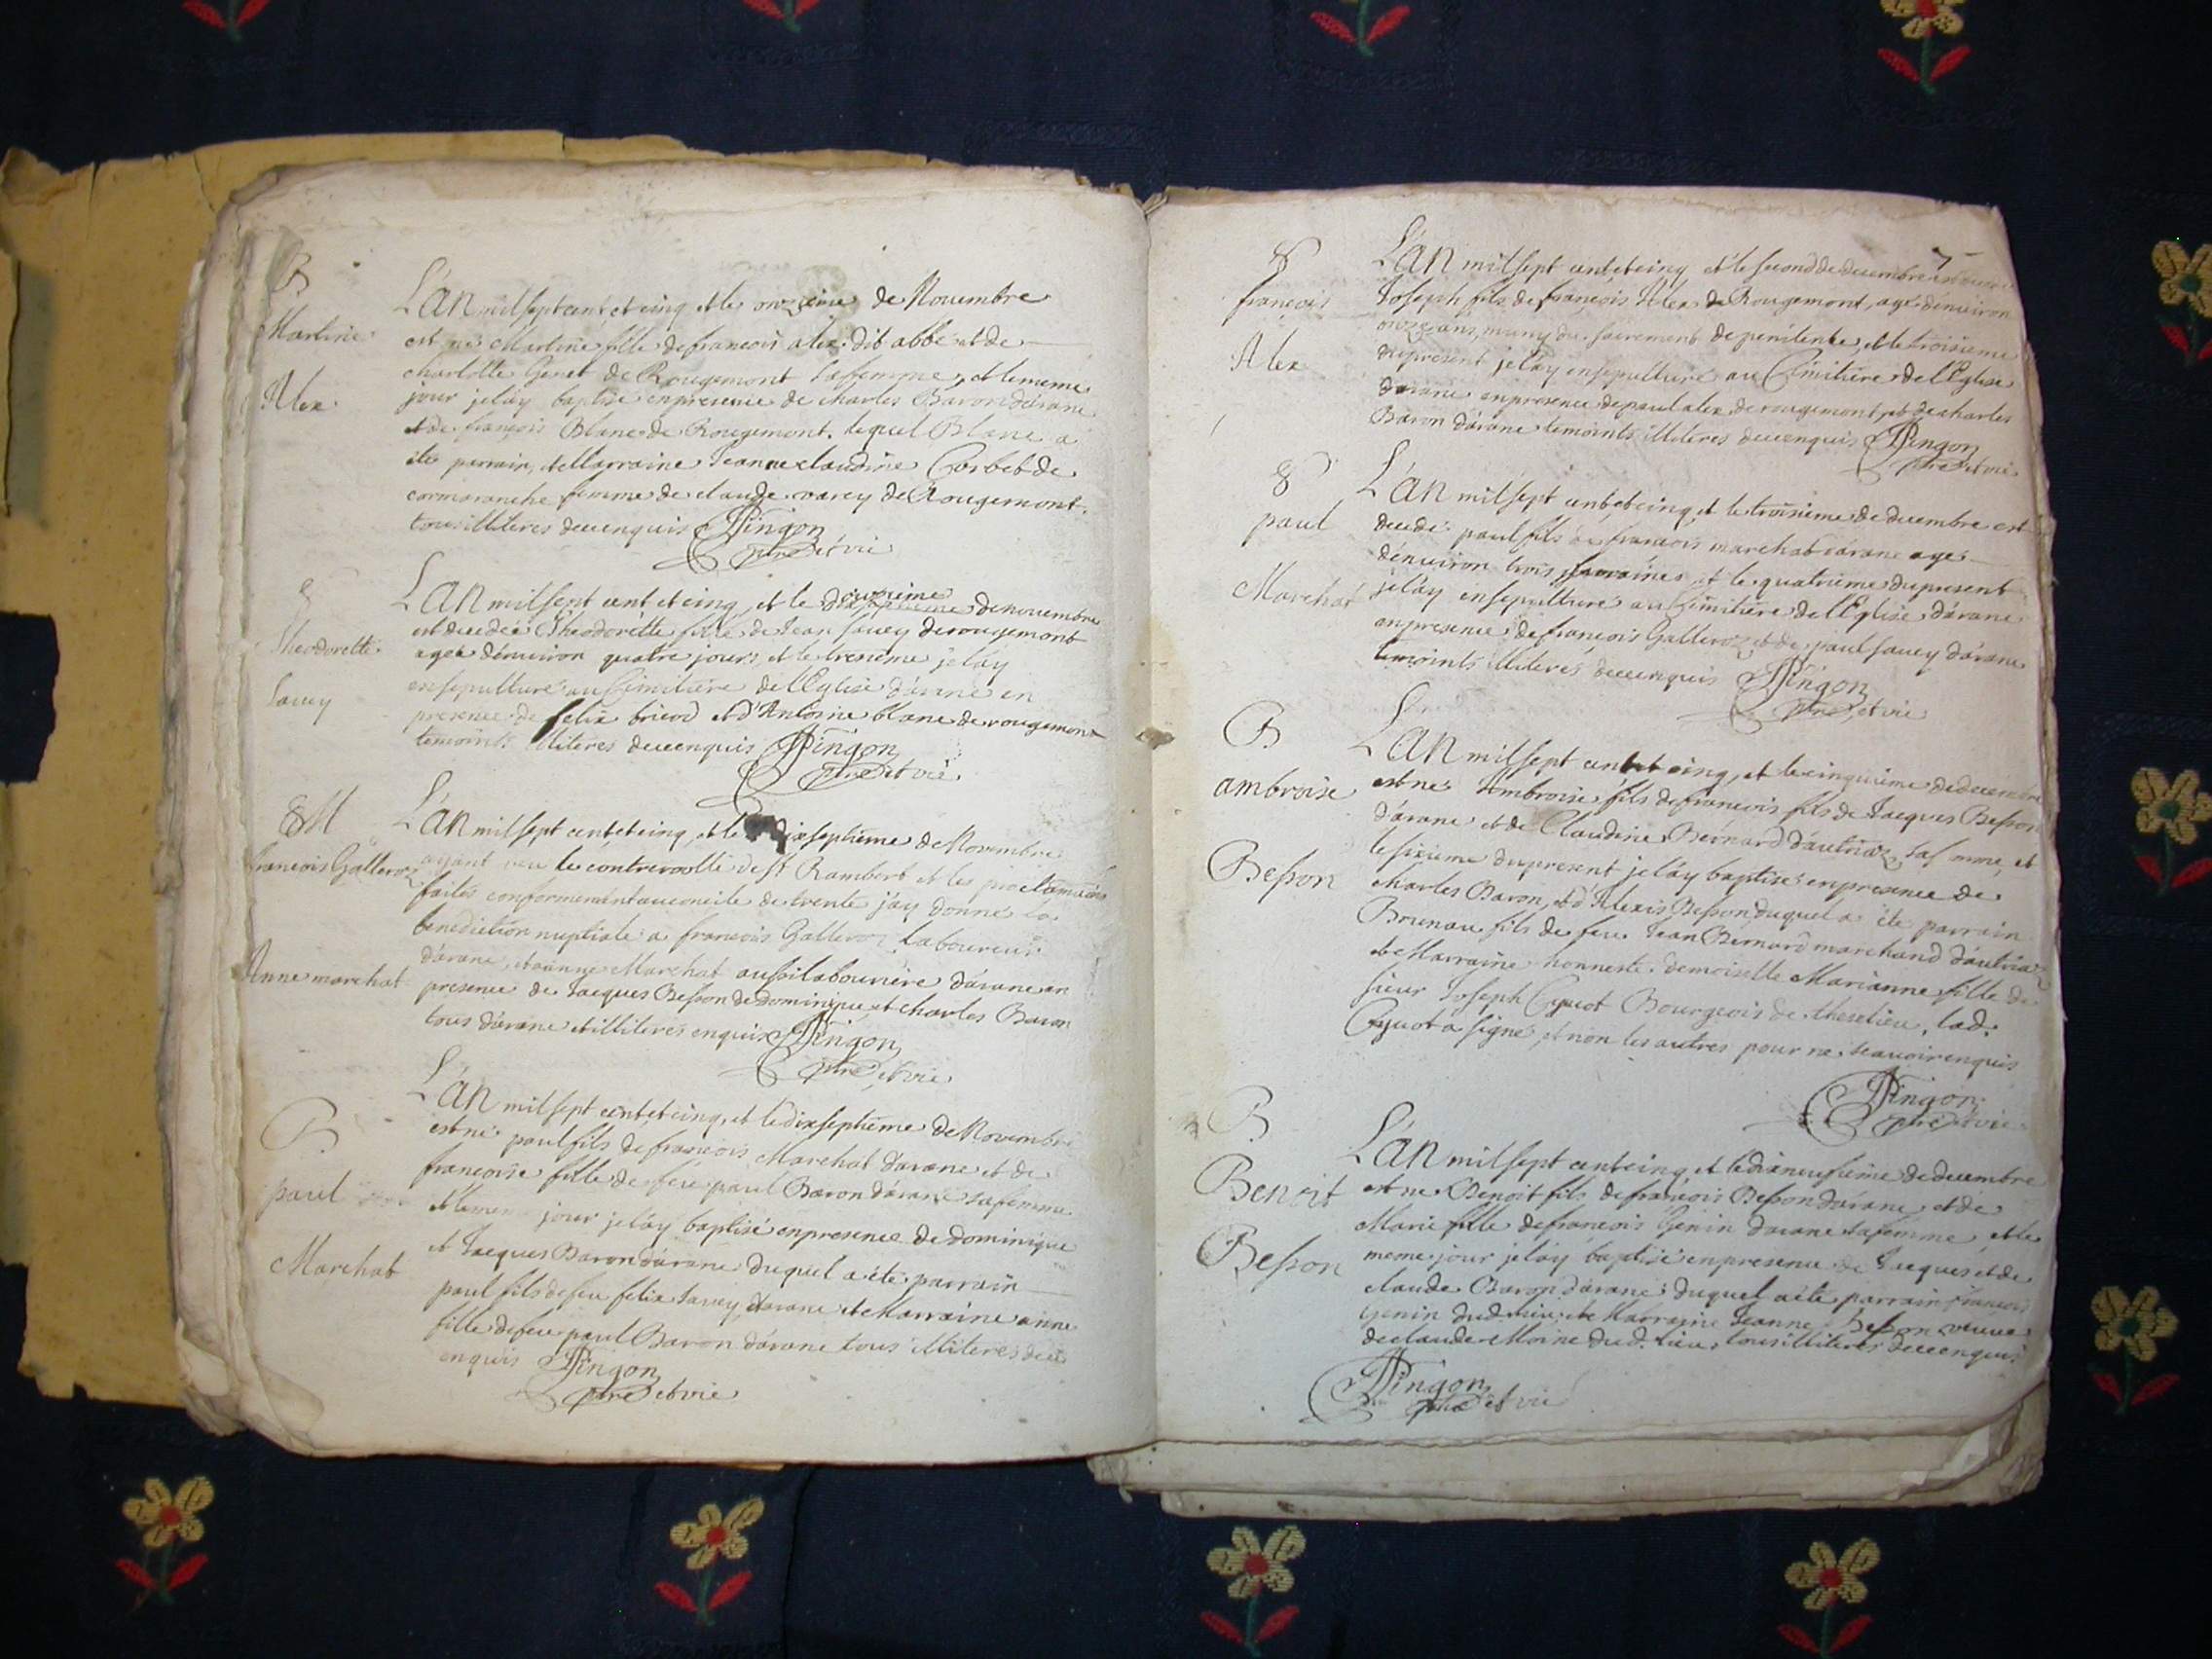 B
Martine
Alex
L'an mil sept cent et cinq et le onzieme de Novembre
est née Martine fille de francois alex dit abbé et de
charlotte Genet de Rougemont sa femme, et le meme
jour je l'ay baptisé en presence de charles Baron d'arane
et de françois Blanc de Rougemont, lequel Blanc a
été parrain, et Marraine Jeanne claudine Corbet de
cormaranche femme de claude varey de Rougemont.
tous illiteres de ce enquis Pingon
ptre et vic
S
Theodorette
Savey
L'an mil sept cent et cinq, et le douzieme de novembre
est decedée Theodorette fille de Jean Savey de rougemont
agée d'enuiron quatre jours, et le tresieme je l'ay
ensepulturé au Cimitiere de l'Eglise d'arane en
presence de felix bricod et d'Antoine blanc de rougemont
temoints illiteres de ce enquis Pingon
ptre et vic
M
francois Galleroz
Anne marchat
L'an mil sept cent et cinq, et le dixseptieme de Novembre
ayant veu le controvolle de St Rambert et les proclamaons
faites conformement au concile de trente j'ay donné la
benediction nuptiale a francois Galleroz laboureur
d'arane, et a anne Marchat aussi labouriere d'arane en
presence de Jacques Besson de dominique et charles Baron
tous d'arane et illiteres enquis Pingon
ptre et vic
B
paul
Marchat
L'an mil sept cent et cinq, et le dixseptieme de Novembre
est né paul fils de francois Marchat d'arane et de
françoise fille de feu paul Baron d'arane sa femme
et le meme jour je l'ay baptisé en presence de dominique
et Jacques Baron d'arane duquel a été parrain
paul fils de feu felix Savey d'arane et Marraine anne
fille de feu paul Baron d'arane tous illiteres de ce
enquis Pingon
ptre et vic
7
S
françois
Alex
L'an mil sept cent et cinq et le second de decembre est
Joseph fils de françois Alex de Rougemont, agé d'enuiron
onze ans, muny du sacrement de penitence, et le troisieme
du present je l'ay ensepulturé au Cimitiere de l'Eglise
d'arane en presence de paul alex de rougemont, et de charles
Baron d'arane temoints illiteres de ce enquis Pingon
ptre et vic
S
paul
Marchat
L'an mil sept cent et cinq, et le troisieme de decembre est
decedé paul fils de francois marchat d'arane agé
d'enuiron trois semaines, et le quatrieme du present
je l'ay ensepulturé au Cimitiere de l'Eglise d'arane
en presence de françois Galleroz, et de paul savey d'arane
temoints illiteres de ce enquis Pingon
ptre et vic
B
ambroise
Besson
L'an mil sept cent et cinq, et le cinquieme de decembre
est né Ambroise fils de francois fils de Jacques Besson
d'arane et de Claudine Bernard d'autriaz sa femme, et
le sixieme du present je l'ay baptisé en presence de
charles Baron, et d'Alexis Besson, duquel a été parrain
Brunau fils de feu Jean Bernard marchand d'autriaz
et Marraine honneste demoiselle Marianne fille de
sieur Joseph Cyuot Bourgeois de theselieu, lad.
Cyuot a signé, et non les autres pour ne scauoir enquis
Pingon
ptre et vic
B
Benoit
Besson
L'an mil sept cent cinq et le dixneufieme de decembre
est né Benoit fils de francois Besson d'arane, et de
Marie fille de francois Genin d'arane sa femme, et le
meme jour je l'ay baptisé en presence de Jacques et de
claude Baron d'arane duquel a été parrain francois
Genin dud. lieu, et Marraine Jeanne Besson veuue
de claude Moine dud. lieu, tous illiteres de ce enquis
Pingon
ptre et vic